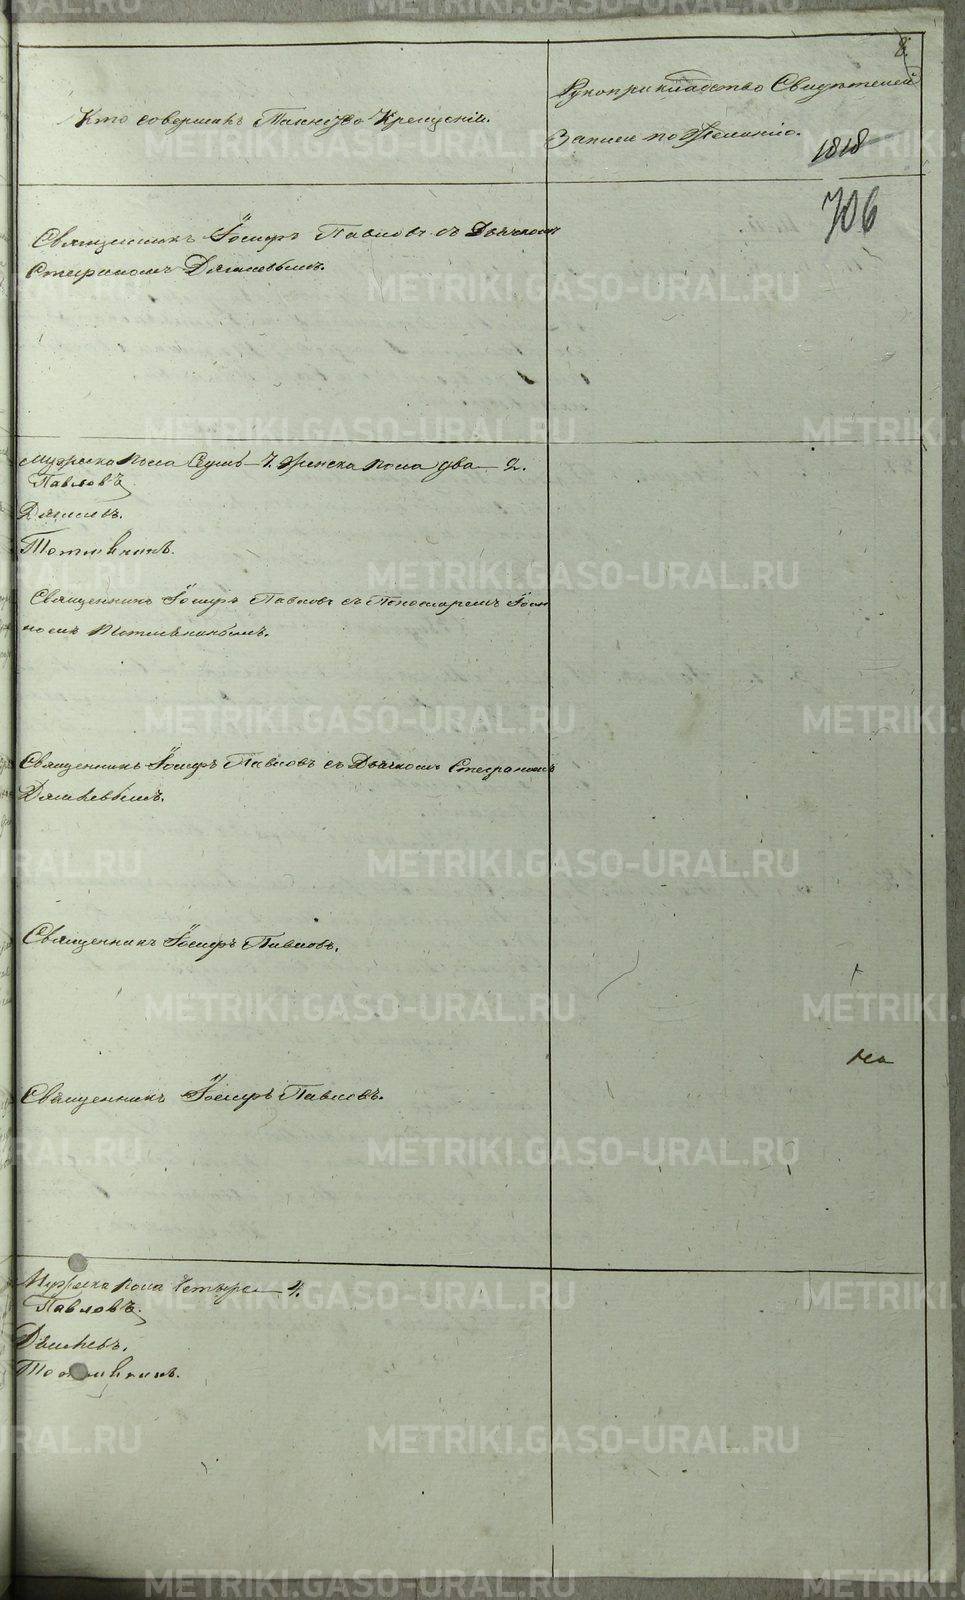 8.
Кто совершалъ Таинство Крещенія.
Рукоприкладство Свидѣтелей
Записи по Желанію.
1818
706
Священникъ Іосифъ Павловъ съ Дьячкомъ
Стефаномъ
Мужеска пола Седмь – 7. Женска пола два – 2.
Павловъ
Священникъ Іосифъ Павловъ съ Пономаремъ Іоан
номъ
Священникъ Іосифъ Павловъ съ Дьячкомъ Стефаномъ
Священникъ Іосифъ Павловъ.
Священникъ Іосифъ Павловъ.
Мужеска пола Четыре – 4.
Павловъ.
METRIKI.GASO-URAL.RU